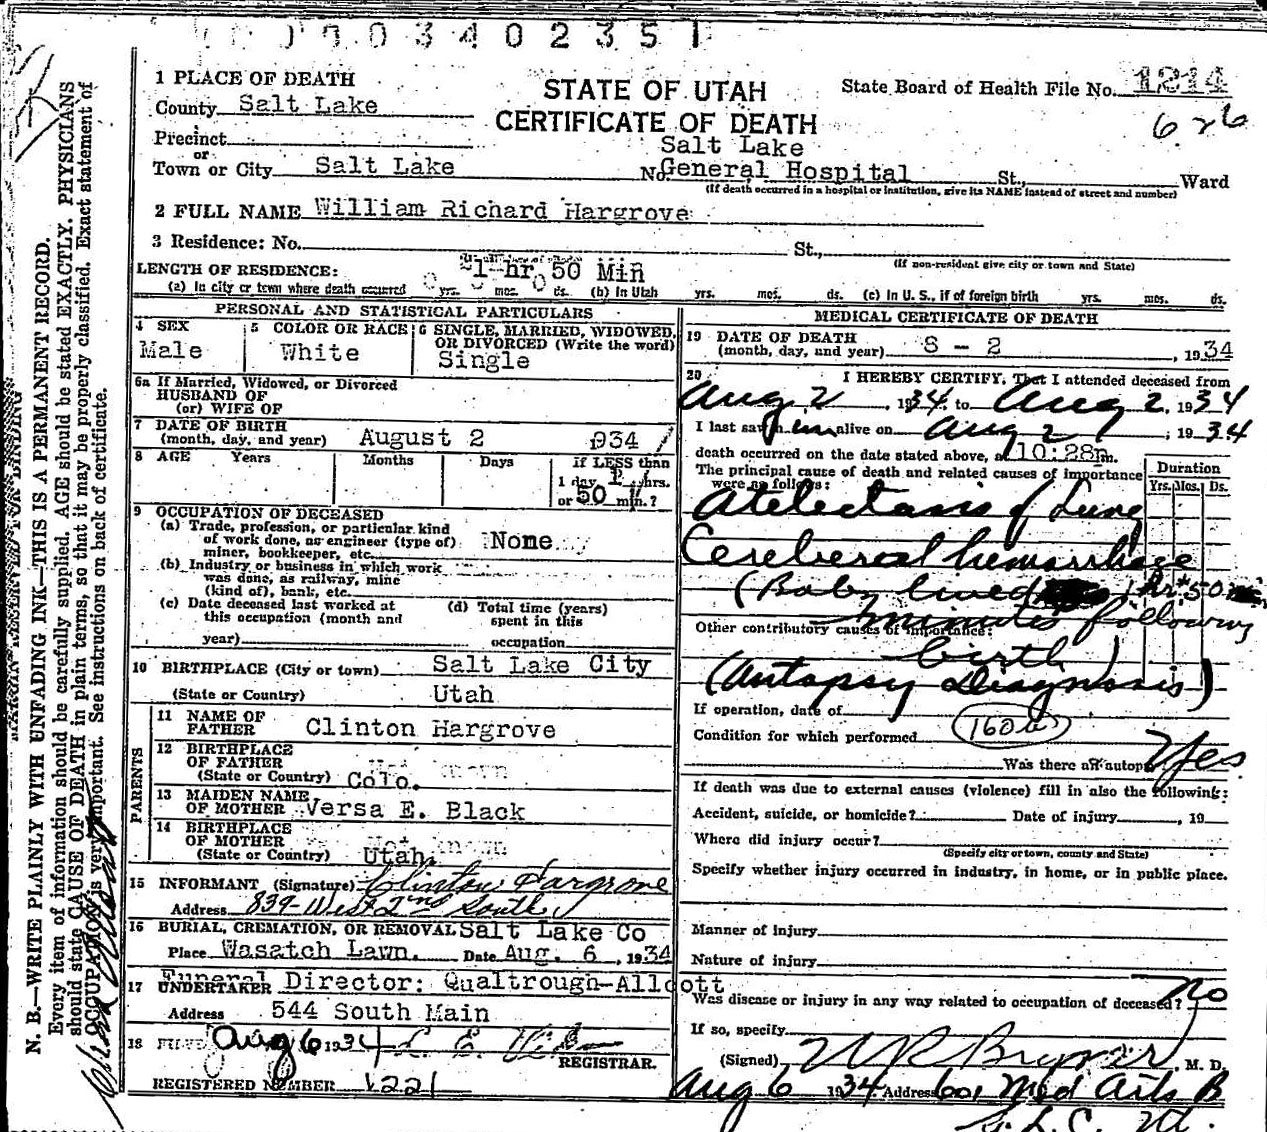 0003402351
1 PLACE OF DEATH
STATE OF UTAH
CERTIFICATE OF DEATH
State Board of Health File No. 1214
626
County Salt Lake
Precinct
or
Town or City Salt Lake
Salt Lake
No. General Hospital St., Ward
(If death occurred in a hospital or institution, give its NAME instead of street and number)
2 FULL NAME William Richard Hargrove
3 Residence: No. St.,
(If non-resident give city or town and State)
LENGTH OF RESIDENCE: 1 hr 50 Min
(a) In city or town where death occurred yrs. mos. ds. (b) In Utah yrs. mos. ds. (c) In U. S., if of foreign birth yrs. mos. ds.
PERSONAL AND STATISTICAL PARTICULARS
4 SEX
Male
5 COLOR OR RACE
White
6 SINGLE, MARRIED, WIDOWED, OR DIVORCED (Write the word)
Single
6a If Married, Widowed, or Divorced
HUSBAND OF
(or) WIFE OF
7 DATE OF BIRTH
(month, day, and year) August 2 1934
8 AGE Years Months Days If LESS than
1 day, 1 hrs.
or 50 min.?
9 OCCUPATION OF DECEASED
(a) Trade, profession, or particular kind
of work done, as engineer (type of)
miner, bookkeeper, etc. None
(b) Industry or business in which work
was done, as railway, mine
(kind of), bank, etc.
(c) Date deceased last worked at
this occupation (month and
year)
(d) Total time (years)
spent in this
occupation
10 BIRTHPLACE (City or town) Salt Lake City
(State or Country) Utah
PARENTS
11 NAME OF
FATHER Clinton Hargrove
12 BIRTHPLACE
OF FATHER
(State or Country) Colo.
13 MAIDEN NAME
OF MOTHER Versa E. Black
14 BIRTHPLACE
OF MOTHER
(State or Country) Utah
15 INFORMANT (Signature) Clinton Hargrove
Address 839-West 2nd South
16 BURIAL, CREMATION, OR REMOVAL Salt Lake Co
Place Wasatch Lawn. Date Aug. 6, 1934
17 UNDERTAKER Funeral Director: Qualtrough-Allcott
Address 544 South Main
18 FILED Aug 6 1934
REGISTRAR.
REGISTERED NUMBER 1221
MEDICAL CERTIFICATE OF DEATH
19 DATE OF DEATH
(month, day, and year) 8 - 2, 1934
20 I HEREBY CERTIFY, That I attended deceased from
Aug 2, 1934, to Aug 2, 1934
I last saw him alive on Aug 2, 1934
death occurred on the date stated above, at 10:28 m.
The principal cause of death and related causes of importance
were as follows:
Duration
Yrs. Mos. Ds.
Atelectasis of Lung
Cerebral hemorrhage
(Baby lived 1 hr + 50
minutes following
Other contributory causes of importance:
birth)
(Autopsy Diagnosis)
If operation, date of
Condition for which performed 160a
Was there an autopsy Yes
If death was due to external causes (violence) fill in also the following:
Accident, suicide, or homicide? Date of injury , 19
Where did injury occur?
(Specify city or town, county and State)
Specify whether injury occurred in industry, in home, or in public place.
Manner of injury
Nature of injury
Was disease or injury in any way related to occupation of deceased? No
If so, specify
(Signed) M. D.
Aug 6 1934 Address 601 Med Arts B
S. L. C. Ut.
MARGIN RESERVED FOR BINDING
N. B.—WRITE PLAINLY WITH UNFADING INK—THIS IS A PERMANENT RECORD.
Every item of information should be carefully supplied. AGE should be stated EXACTLY. PHYSICIANS
should state CAUSE OF DEATH in plain terms, so that it may be properly classified. Exact statement of
OCCUPATION is very important. See instructions on back of certificate.